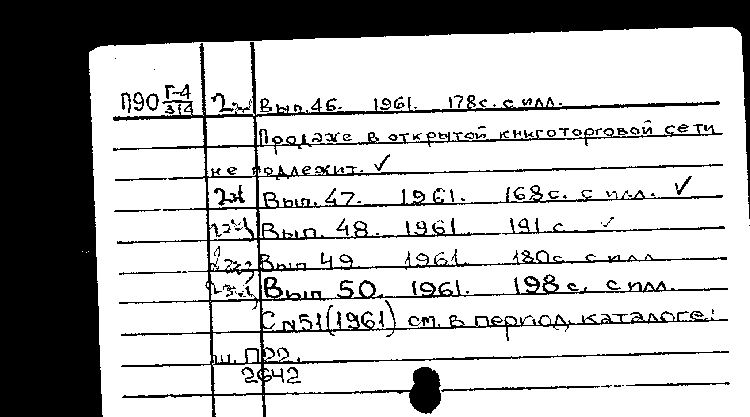 П90 Г-4/314 2эк Вып. 46. 1961. 178с. с илл.
Продаже в открытой книготорговой сети
не подлежит. ✓
2эк Вып. 47. 1961. 168с. с илл. ✓
Вып. 48. 1961. 191 с. ✓
Вып 49. 1961. 180с. с илл
Вып 50. 1961. 198 с. с илл.
С №51(1961) см. в период. каталоге:
ш. П22.
2642